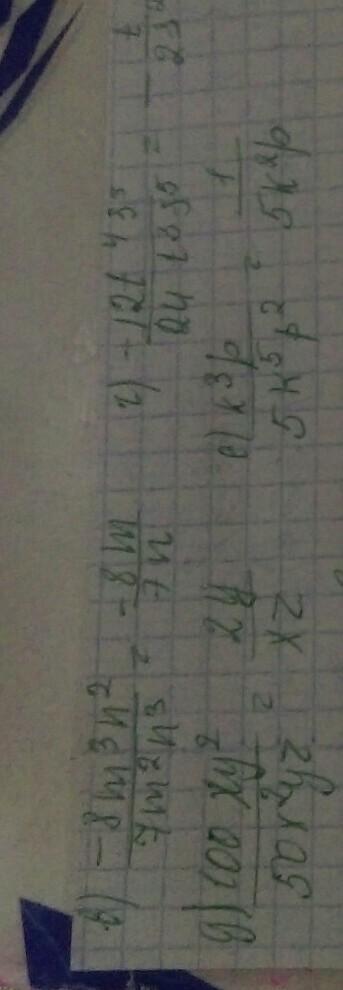 в) -8m³n² / 7m²n³ = -8m / 7n   г) -12t⁴s³ / 24t³s⁵ = - t / 2s²
д) 100xy² / 50x²yz = 2y / xz   е) k³p / 5k⁵p² = 1 / 5k²p